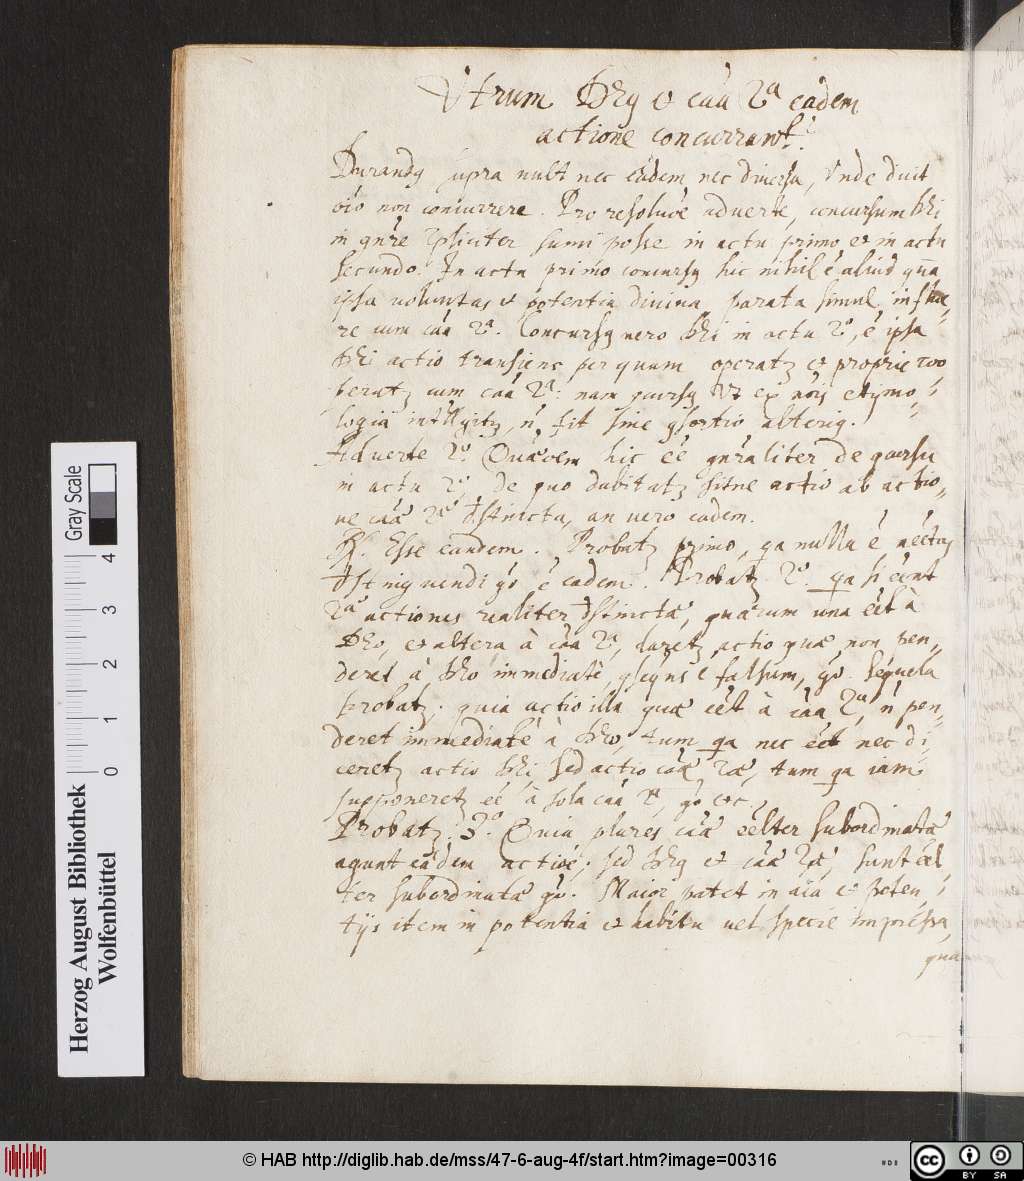 Utrum Deus et caã 2ª eadem
actione concurrant?
Durandus supra vult nec eadem nec diversa, Unde dicit
oĩo non concurrere. Pro resoluõe adverte, concursum Dei
in gñre simpliciter sumi posse in actu primo, et in actu
secundo. In actu primo concursus hic nihil ẽ aliud quã
ipsa voluntas et potentia divina parata simul influe-
re cum caã 2ª. Concursus vero Dei in actu 2º, ẽ ipsa
Dei actio transiens per quam operatur et proprie coo
peratur cum caã 2ª: nam concursus ut ex nõis etymo-
logia intelligitur, ñ fit sine consortio alterius.
Adverte 2º. Quæstionem hic eẽ gñraliter de concursu
in actu 2º, de quo dubitatur sitne actio ab actio-
ne caæ 2æ distincta, an vero eadem.
R. Esse eandem. Probatur primo, qa nulla ẽ necẽtas
distinguendi gõ ẽ eadem. Probatur 2º. qa si eẽnt
2æ actiones realiter distinctæ, quarum una eẽt à
Deo, et altera à caã 2ª, daretur actio quæ non pen-
deret à Deo immediatè, consequens ẽ falsum, gõ. Sequela
probatur. quia actio illa quæ eẽt à caã 2ª, ñ pen-
deret immediatè à Deo, tum qa nec eẽt nec di-
ceretur actio Dei sed actio caæ 2æ, tum qa iam
supponeretur eẽ à sola caã 2ª, gõ etc.
Probatur 3º. Quia plures caæ eẽlter subordinatæ
agunt eadem actiõe; sed Deus et caæ 2æ, sunt eẽl
ter subordinatæ gõ. Maior patet in aĩa et poten-
tijs item in potentia et habitu vel specie impressa,
qua
Gray Scale
4
3
2
1
0
Herzog August Bibliothek
Wolfenbüttel
© HAB http://diglib.hab.de/mss/47-6-aug-4f/start.htm?image=00316
cc
BY SA